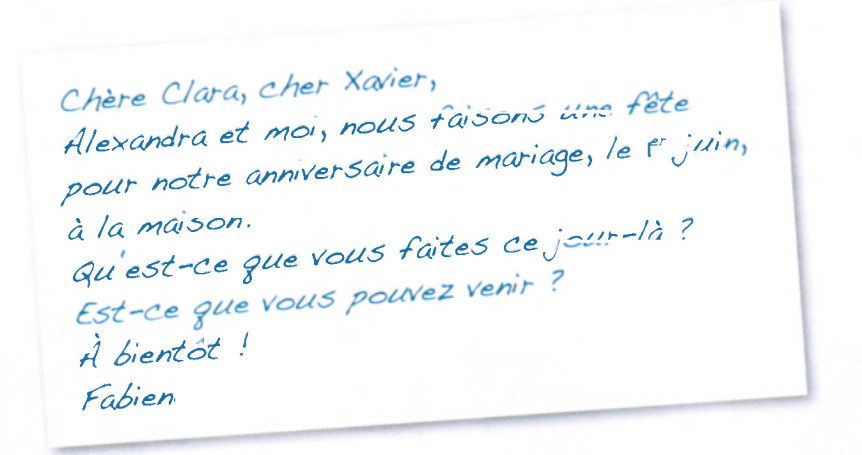 Chère Clara, cher Xavier,
Alexandra et moi, nous faisons une fête
pour notre anniversaire de mariage, le 1er juin,
à la maison.
Qu'est-ce que vous faites ce jour-là ?
Est-ce que vous pouvez venir ?
À bientôt !
Fabien